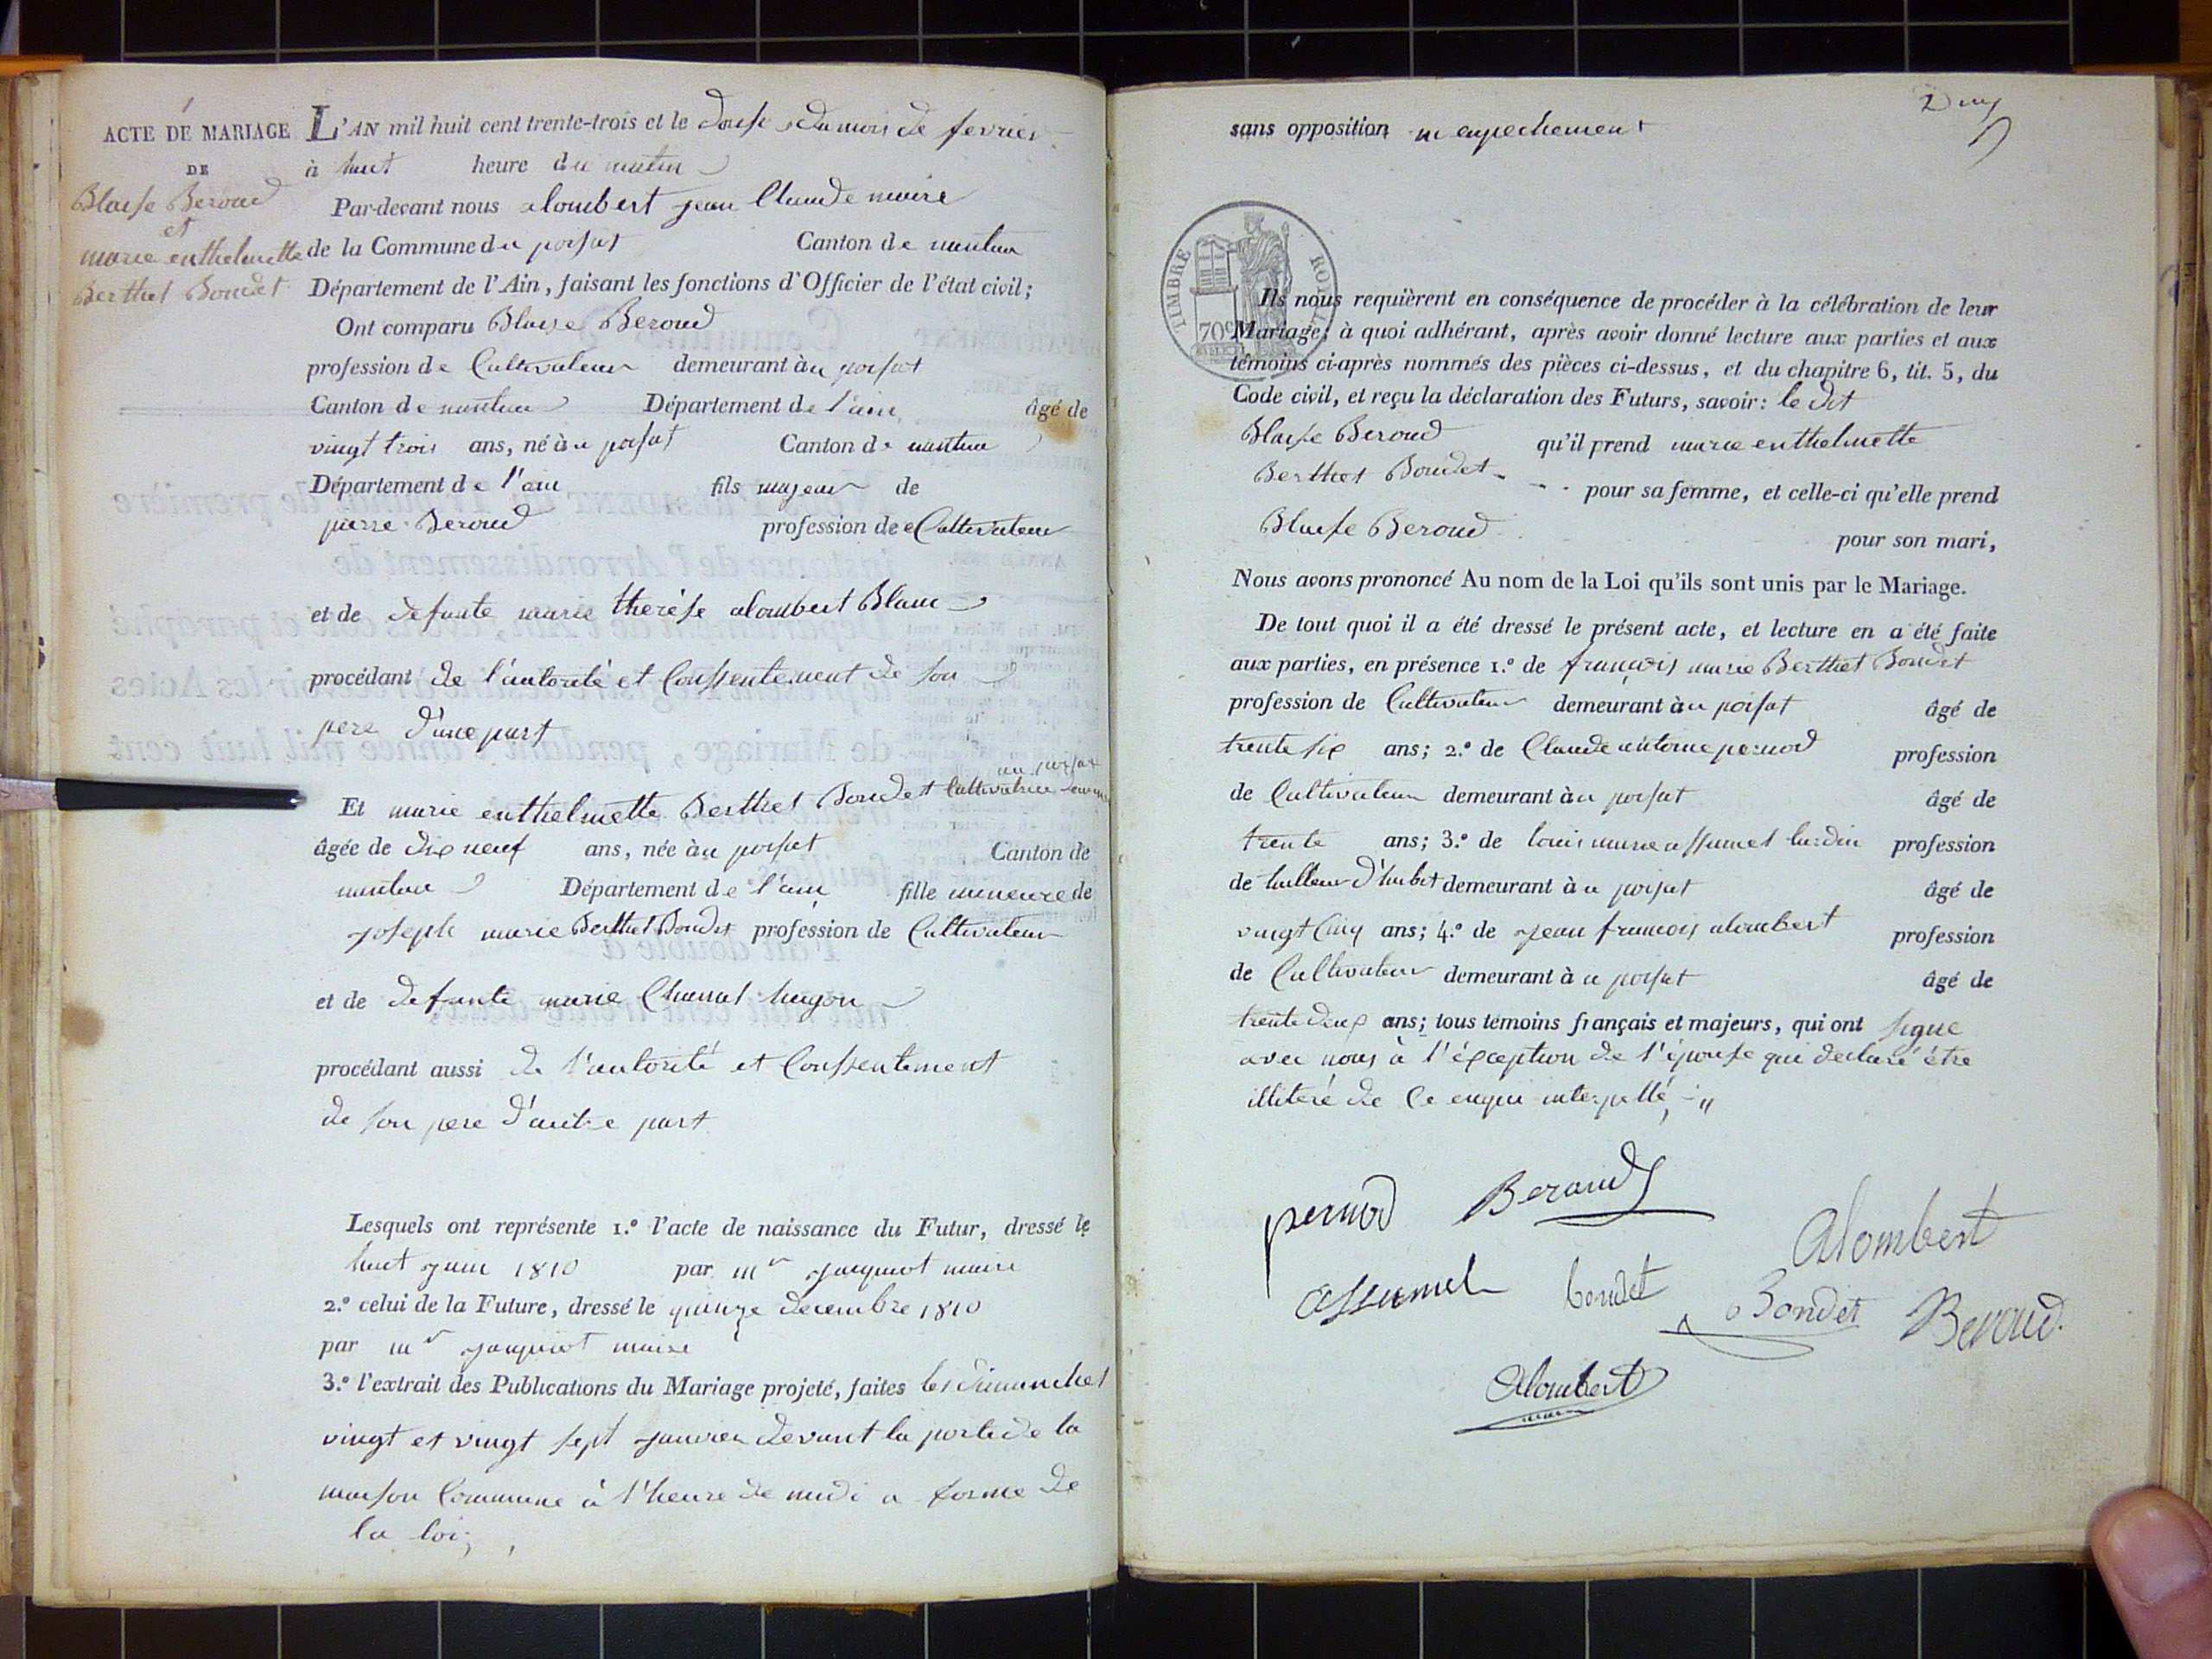 ACTE DE MARIAGE
DE
Blaise Beroud
et
marie enthelmette
Berthet Bondet
L'AN mil huit cent trente-trois et le douse du mois de fevrier
à huit heure du matin
Par-devant nous alombert jean Claude maire
de la Commune du poisat Canton de nantua
Département de l'Ain, faisant les fonctions d'Officier de l'état civil;
Ont comparu Blaise Beroud
profession de Cultivateur demeurant à u poisat
Canton de nantua Département de l'ain âgé de
vingt trois ans, né à u poisat Canton de nantua
Département de l'ain fils majeur de
pierre Beroud profession de Cultivateur
et de defunte marie therése alombert Blanc
procédant de l'autorité et Conssentement de son
pere d'une part
au poisat
Et marie enthelmette Berthet Bondet Cultivatrice
âgée de dix neuf ans, née à u poisat Canton de
nantua Département de l'ain fille mineure de
joseph marie Berthet Bondet profession de Cultivateur
et de defunte marie hugon
procédant aussi de l'autorité et Conssentement
de son pere d'autre part
Lesquels ont représente 1.º l'acte de naissance du Futur, dressé le
huit juin 1810 par mr jacquiot maire
2.º celui de la Future, dressé le quinze decembre 1810
par mr jacquiot maire
3.º l'extrait des Publications du Mariage projeté, faites les dimanches
vingt et vingt sept janvier devant la porte de la
maison Commune à l'heure de midi a forme de
la loi;
Deux
sans opposition ni enpechement
TIMBRE ROYAL
70c
Ils nous requièrent en conséquence de procéder à la célébration de leur
Mariage; à quoi adhérant, après avoir donné lecture aux parties et aux
témoins ci-après nommés des pièces ci-dessus, et du chapitre 6, tit. 5, du
Code civil, et reçu la déclaration des Futurs, savoir: le dit
Blaise Beroud qu'il prend marie enthelmette
Berthet Bondet pour sa femme, et celle-ci qu'elle prend
Blaise Beroud pour son mari,
Nous avons prononcé Au nom de la Loi qu'ils sont unis par le Mariage.
De tout quoi il a été dressé le présent acte, et lecture en a été faite
aux parties, en présence 1.º de françois marie Berthet Bondet
profession de Cultivateur demeurant à u poisat âgé de
trente six ans; 2.º de Claude antoine pernod profession
de Cultivateur demeurant à u poisat âgé de
trente ans; 3.º de louis marie assumel lurdin profession
de tailleur d'habit demeurant à u poisat âgé de
vingt Cinq ans; 4.º de jean francois alombert profession
de Cultivateur demeurant à u poisat âgé de
trente deux ans; tous témoins français et majeurs, qui ont signé
avec nous à l'éxception de l'épouse qui declaré être
illiteré de Ce enqui interpellé
pernod Beroud
Alombert
assumel bondet Bondet Beroud
Alombert